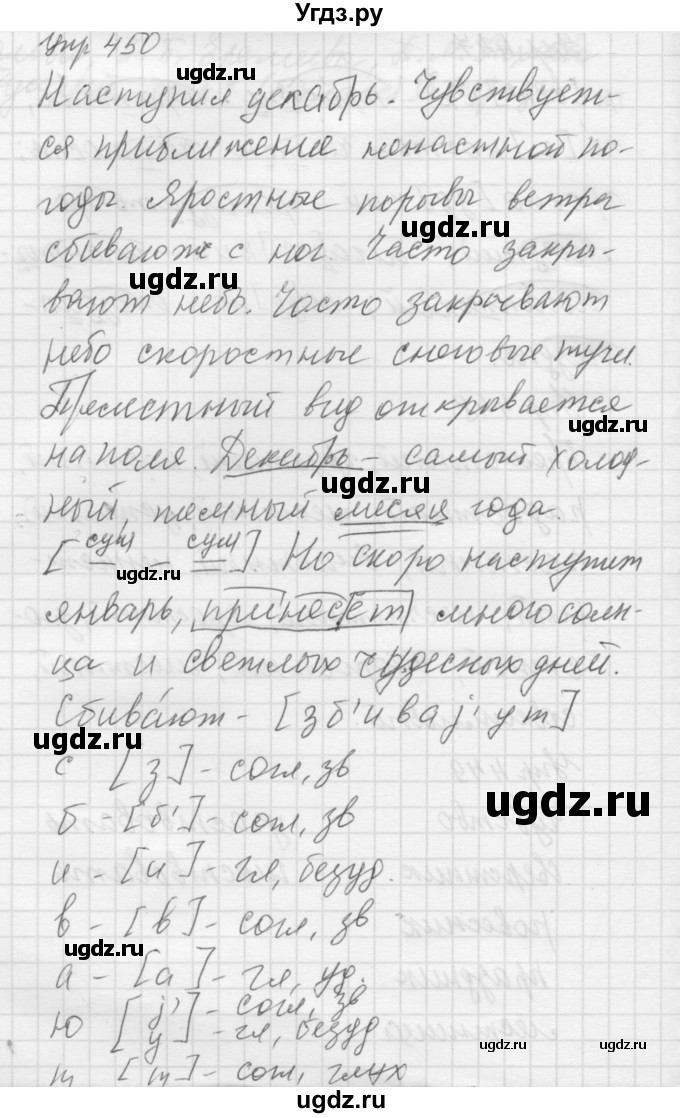 Угдз.ру
Упр 450
ugdz.ru
Наступил декабрь. Чувствует-
ся приближение ненастной по-
годы. Яростные порывы ветра
ugdz.ru
сбивают с ног. Часто закры-
ugdz.ru
вают небо. Часто закрывают
небо скоростные снеговые тучи.
Прелестный вид открывается
ugdz.ru
на поля. Декабрь – самый холод-
ugdz.ru
ный, темный месяц года.
[сущ – сущ] Но скоро наступит
ugdz.ru
январь, принесет много солн-
ца и светлых чудесных дней.
Сбива́ют – [зб'иваj'ут]
ugdz.ru
с [з] – согл, зв
ugdz.ru
б – [б'] согл, зв
и – [и] – гл, безуд.
в – [в] – согл, зв
ugdz.ru
а – [а] – гл, уд.
ю [j'] – согл, зв
[у] – гл, безуд
ugdz.ru
ugdz.ru
т [т] – согл, глух
ugdz.ru